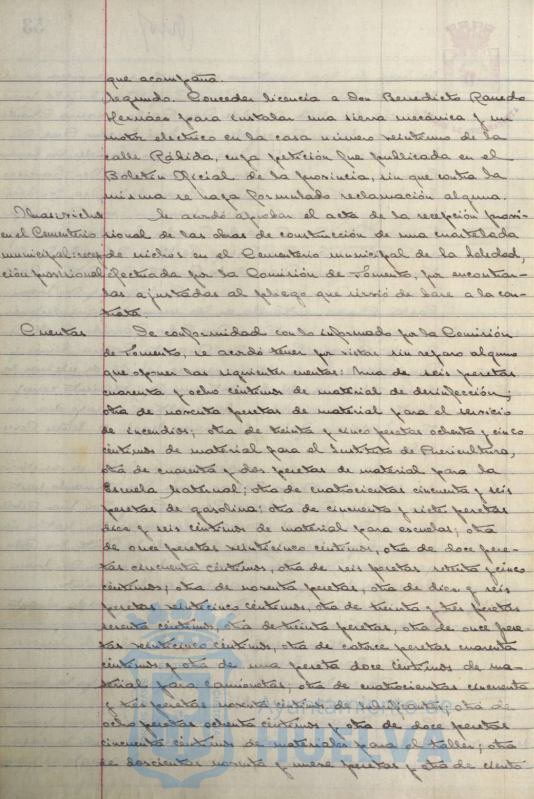 que acompaña.
Segundo. Conceder licencia a Don Benedicto Panedo
Hernáez para instalar una sierra mecánica y un
motor eléctrico en la casa número veintiuno de la
calle Rábida, cuya petición fue publicada en el
Boletín Oficial de la provincia, sin que contra la
misma se haya formulado reclamación alguna.
Nuevos nichos
en el Cementerio
municipal: recep-
ción provisional
Se acordó aprobar el acta de la recepción provi-
sional de las obras de construcción de una cuartelada
de nichos en el Cementerio municipal de la Soledad,
efectuada por la Comisión de Fomento, por encontrar-
las ajustadas al pliego que sirvió de base a la con-
trata.
Cuentas
De conformidad con lo informado por la Comisión
de Fomento, se acordó tener por vistas sin reparo alguno
que oponer las siguientes cuentas: Una de seis pesetas
cuarenta y ocho céntimos de material de desinfección;
otra de noventa pesetas de material para el servicio
de incendios; otra de treinta y cinco pesetas ochenta y cinco
céntimos de material para el Instituto de Puericultura,
otra de cuarenta y dos pesetas de material para la
Escuela Maternal; otra de cuatrocientas cincuenta y seis
pesetas de gasolina; otra de cincuenta y siete pesetas
diez y seis céntimos de material para escuelas; otra
de once pesetas veinticinco céntimos, otra de doce pese-
tas cincuenta céntimos, otra de seis pesetas setenta y cinco
céntimos; otra de noventa pesetas, otra de diez y seis
pesetas veinticinco céntimos, otra de treinta y tres pesetas
sesenta céntimos, otra de treinta pesetas, otra de once pese-
tas veinticinco céntimos, otra de catorce pesetas cuarenta
céntimos y otra de una peseta doce céntimos de ma-
terial para camionetas; otra de cuatrocientas cincuenta
y tres pesetas noventa céntimos de lubrificantes, otra de
ocho pesetas ochenta céntimos y otra de doce pesetas
cincuenta céntimos de materiales para el taller; otra
de doscientas noventa y nueve pesetas y otra de ciento
Ayuntamiento de
HUELVA